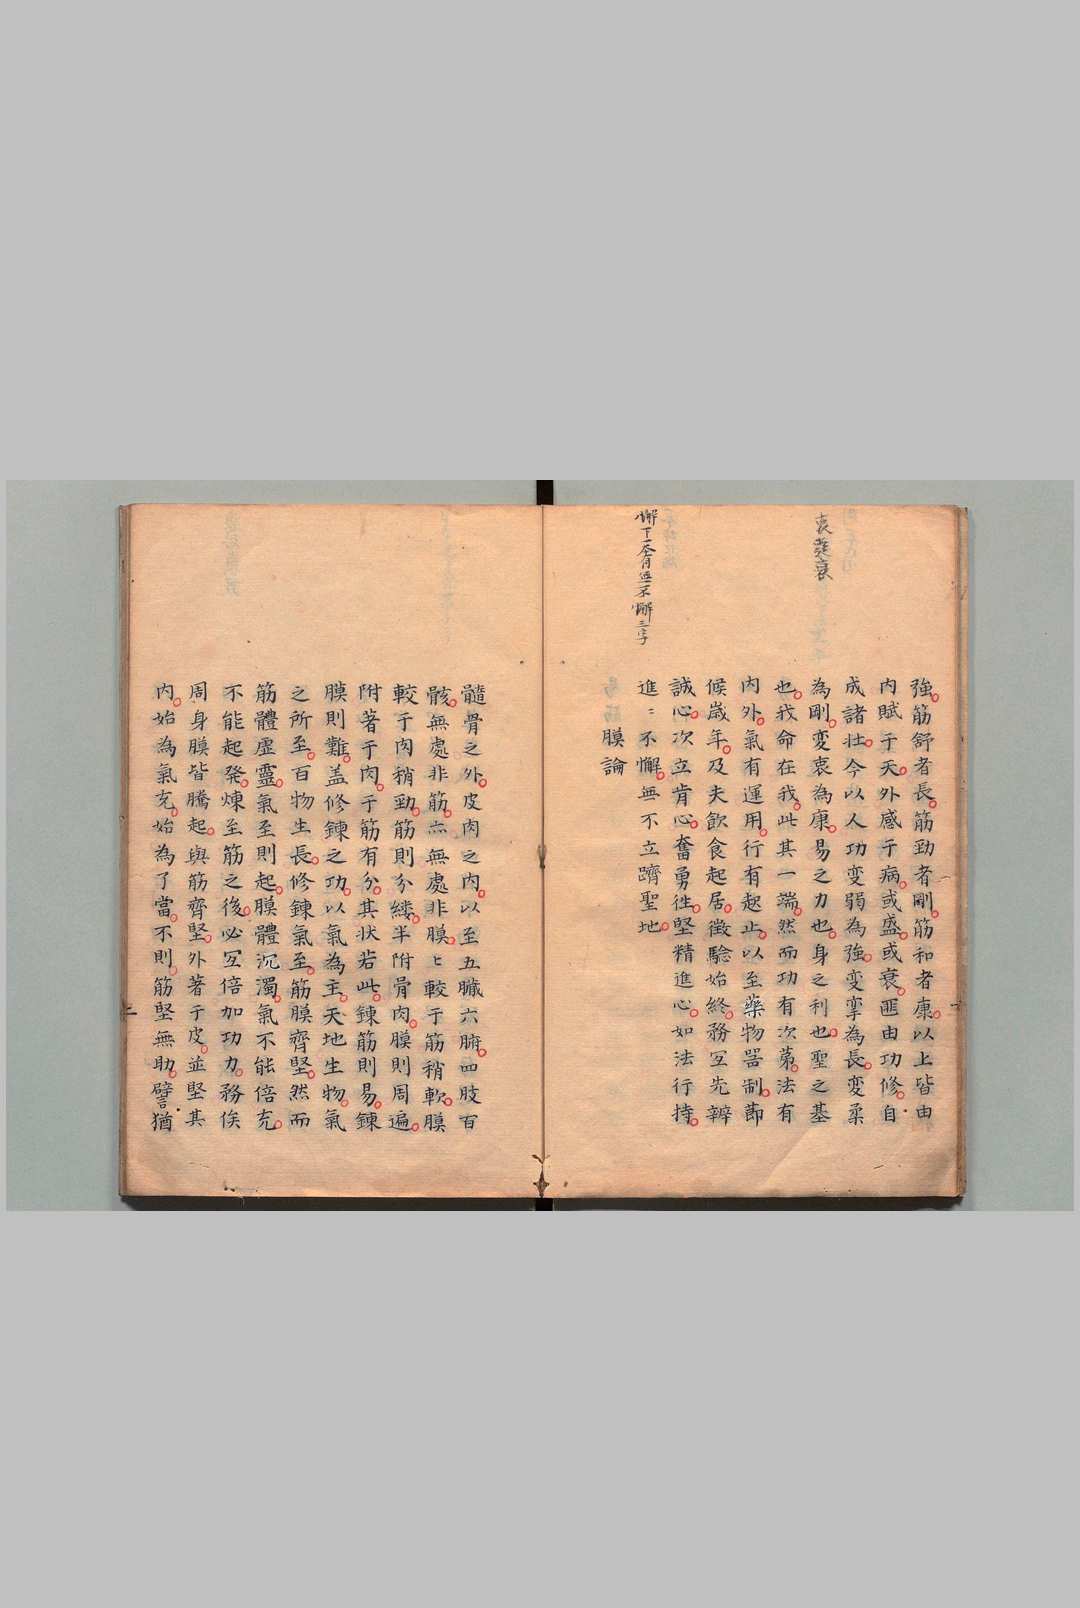 衷疑衰
強。筋舒者長。筋勁者剛。筋和者康。以上皆由
内賦于天。外感于病。或盛。或衰。匪由功修。自
成諸壮。今以人功変弱為強。変攣為長。変柔
為剛。変衷為康。易之力也。身之利也。聖之基
也。我命在我。此其一端。然而功有次第。法有
内外。氣有運用。行有起止。以至藥物噐制。節
候歳年。及夫飲食起居。徴驗始終。務冝先辧
誠心。次立肯心。奮勇徃。堅精進心。如法行持。
懈下一
不懈
三字
進〻不懈。無不立躋聖地。
膜論
髓骨之外。皮肉之内。以至五臟六腑。四肢百
骸。無處非筋。亦無處非膜。〻較于筋稍軟。膜
較于肉稍勁。筋則分縷。半附骨肉。膜則周遍。
附著于肉。于筋有分。其状若此。錬筋則易。錬
膜則難。盖修錬之功。以氣為主。天地生物。氣
之所至。百物生長。修錬氣至。筋膜齊堅。然而
筋體虚靈。氣至則起。膜體沉濁。氣不能倍充。
不能起発。煉至筋之後。必冝倍加功力。務俟
周身膜皆騰起。與筋齊堅。外著于皮。並堅其
内。始為氣充。始為了當。不則。筋堅無助。譬猶